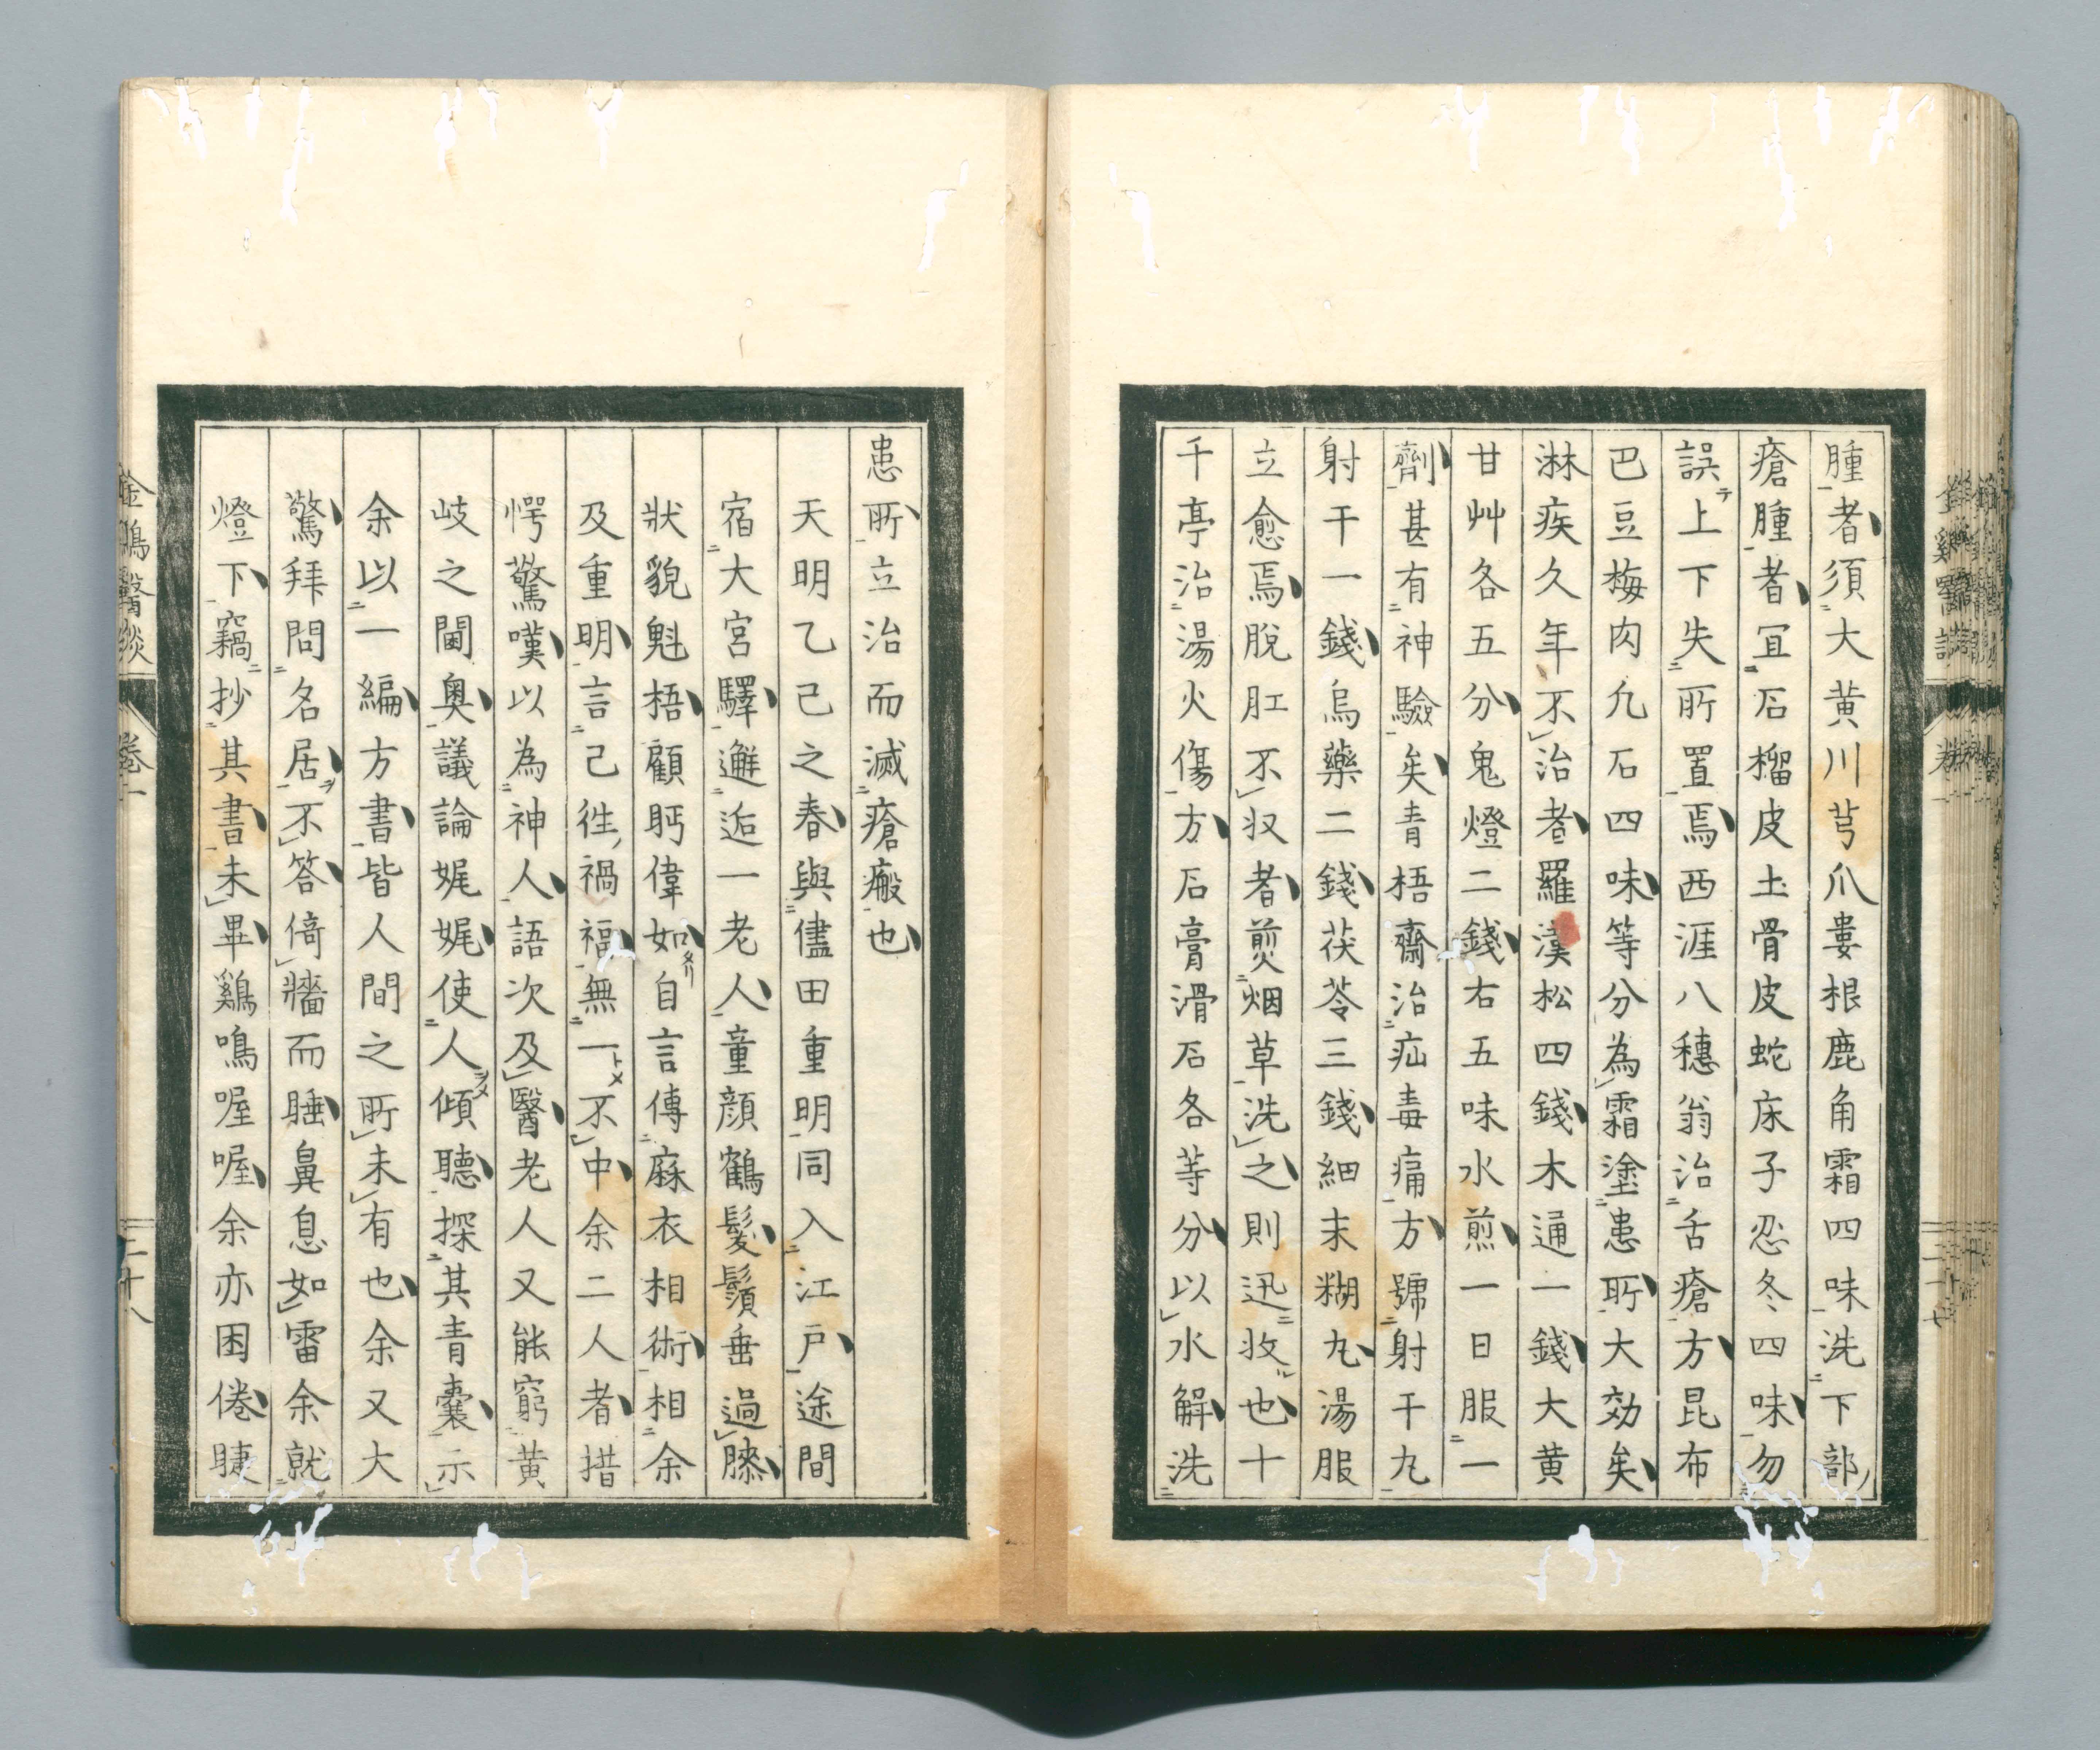 腫者須大黄川芎爪蔞根鹿角霜四味洗下部
瘡腫者冝石榴皮土骨皮蛇床子忍冬四味勿
誤テ上下失所置焉西涯八穗翁治舌瘡方昆布
巴豆梅肉凢石四味等分為霜塗患所大効矣
淋疾久年不治者羅漢松四錢木通一錢大黄
甘艸各五分鬼燈二錢右五味水煎一日服一
劑甚有神驗矣青梧齋治疝毒痛方號射干丸
射干一錢烏藥二錢茯苓三錢細末糊丸湯服
立愈焉脫肛不収者煎烟草洗之則迅收ル也十
千亭治湯火傷方石膏滑石各等分以水解洗
患所立治而滅瘡瘢也
天明乙己之春與儘田重明同入江戸途間
宿大宮驛邂逅一老人童顔鶴髮鬚垂過膝
狀貌魁梧顧眄偉如タリ自言傳麻衣相術相余
及重明言己徃禍福無一トメ不中余二人者措
愕驚嘆以為神人語次及醫老人又能窮黄
岐之閫奥議論娓娓使人ヲメ傾聽探其青囊示
余以一編方書皆人間之所未有也余又大
驚拜問名居ヲ不答倚牆而睡鼻息如雷余就
燈下竊抄其書未畢鷄鳴喔喔余亦困倦睫
卷一
二十八